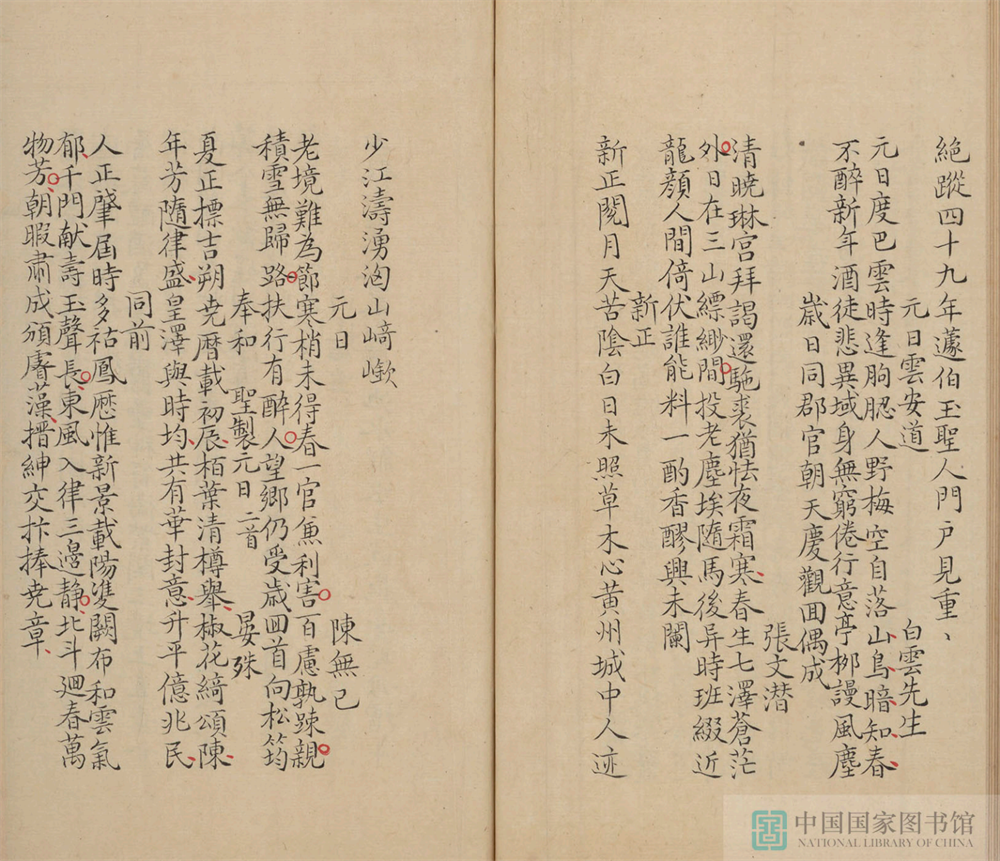 絶蹤四十九年蘧伯玉聖人門戸見重、
元日雲安道 白雲先生
元日度巴雲時逢朐䏰人野梅空自落山鳥暗知春
不醉新年酒徒悲異域身無窮倦行意亭柳謾風塵
歳日同郡官朝天慶觀囬偶成
張文潛
清曉琳宫拜謁還駞裘猶怯夜霜寒春生七澤蒼茫
外日在三山縹緲間投老塵埃隨馬後异時班綴近
龍顔人間倚伏誰能料一酌香醪興未闌
新正
新正閲月天苦陰白日未照草木心黄州城中人迹
少江濤湧洶山﨑嶔
元日 陳無已
老境難為節寒梢未得春一官魚利害百慮孰踈親
積雪無歸路扶行有醉人望鄉仍受歳囬首向松筠
奉和 聖製元日 二音 晏殊
夏正標吉朔尭暦載初辰栢葉清樽舉椒花綺頌陳
年芳隨律盛皇澤與時均共有華封意升平億兆民
同前
人正肇屆時多祜鳳厯惟新景載陽雙闕布和雲氣
郁千門献壽玉聲長東風入律三邉静北斗廻春萬
物芳朝暇肅成頒睿藻搢紳交抃捧尭章
中国国家图书馆
NATIONAL LIBRARY OF CHINA